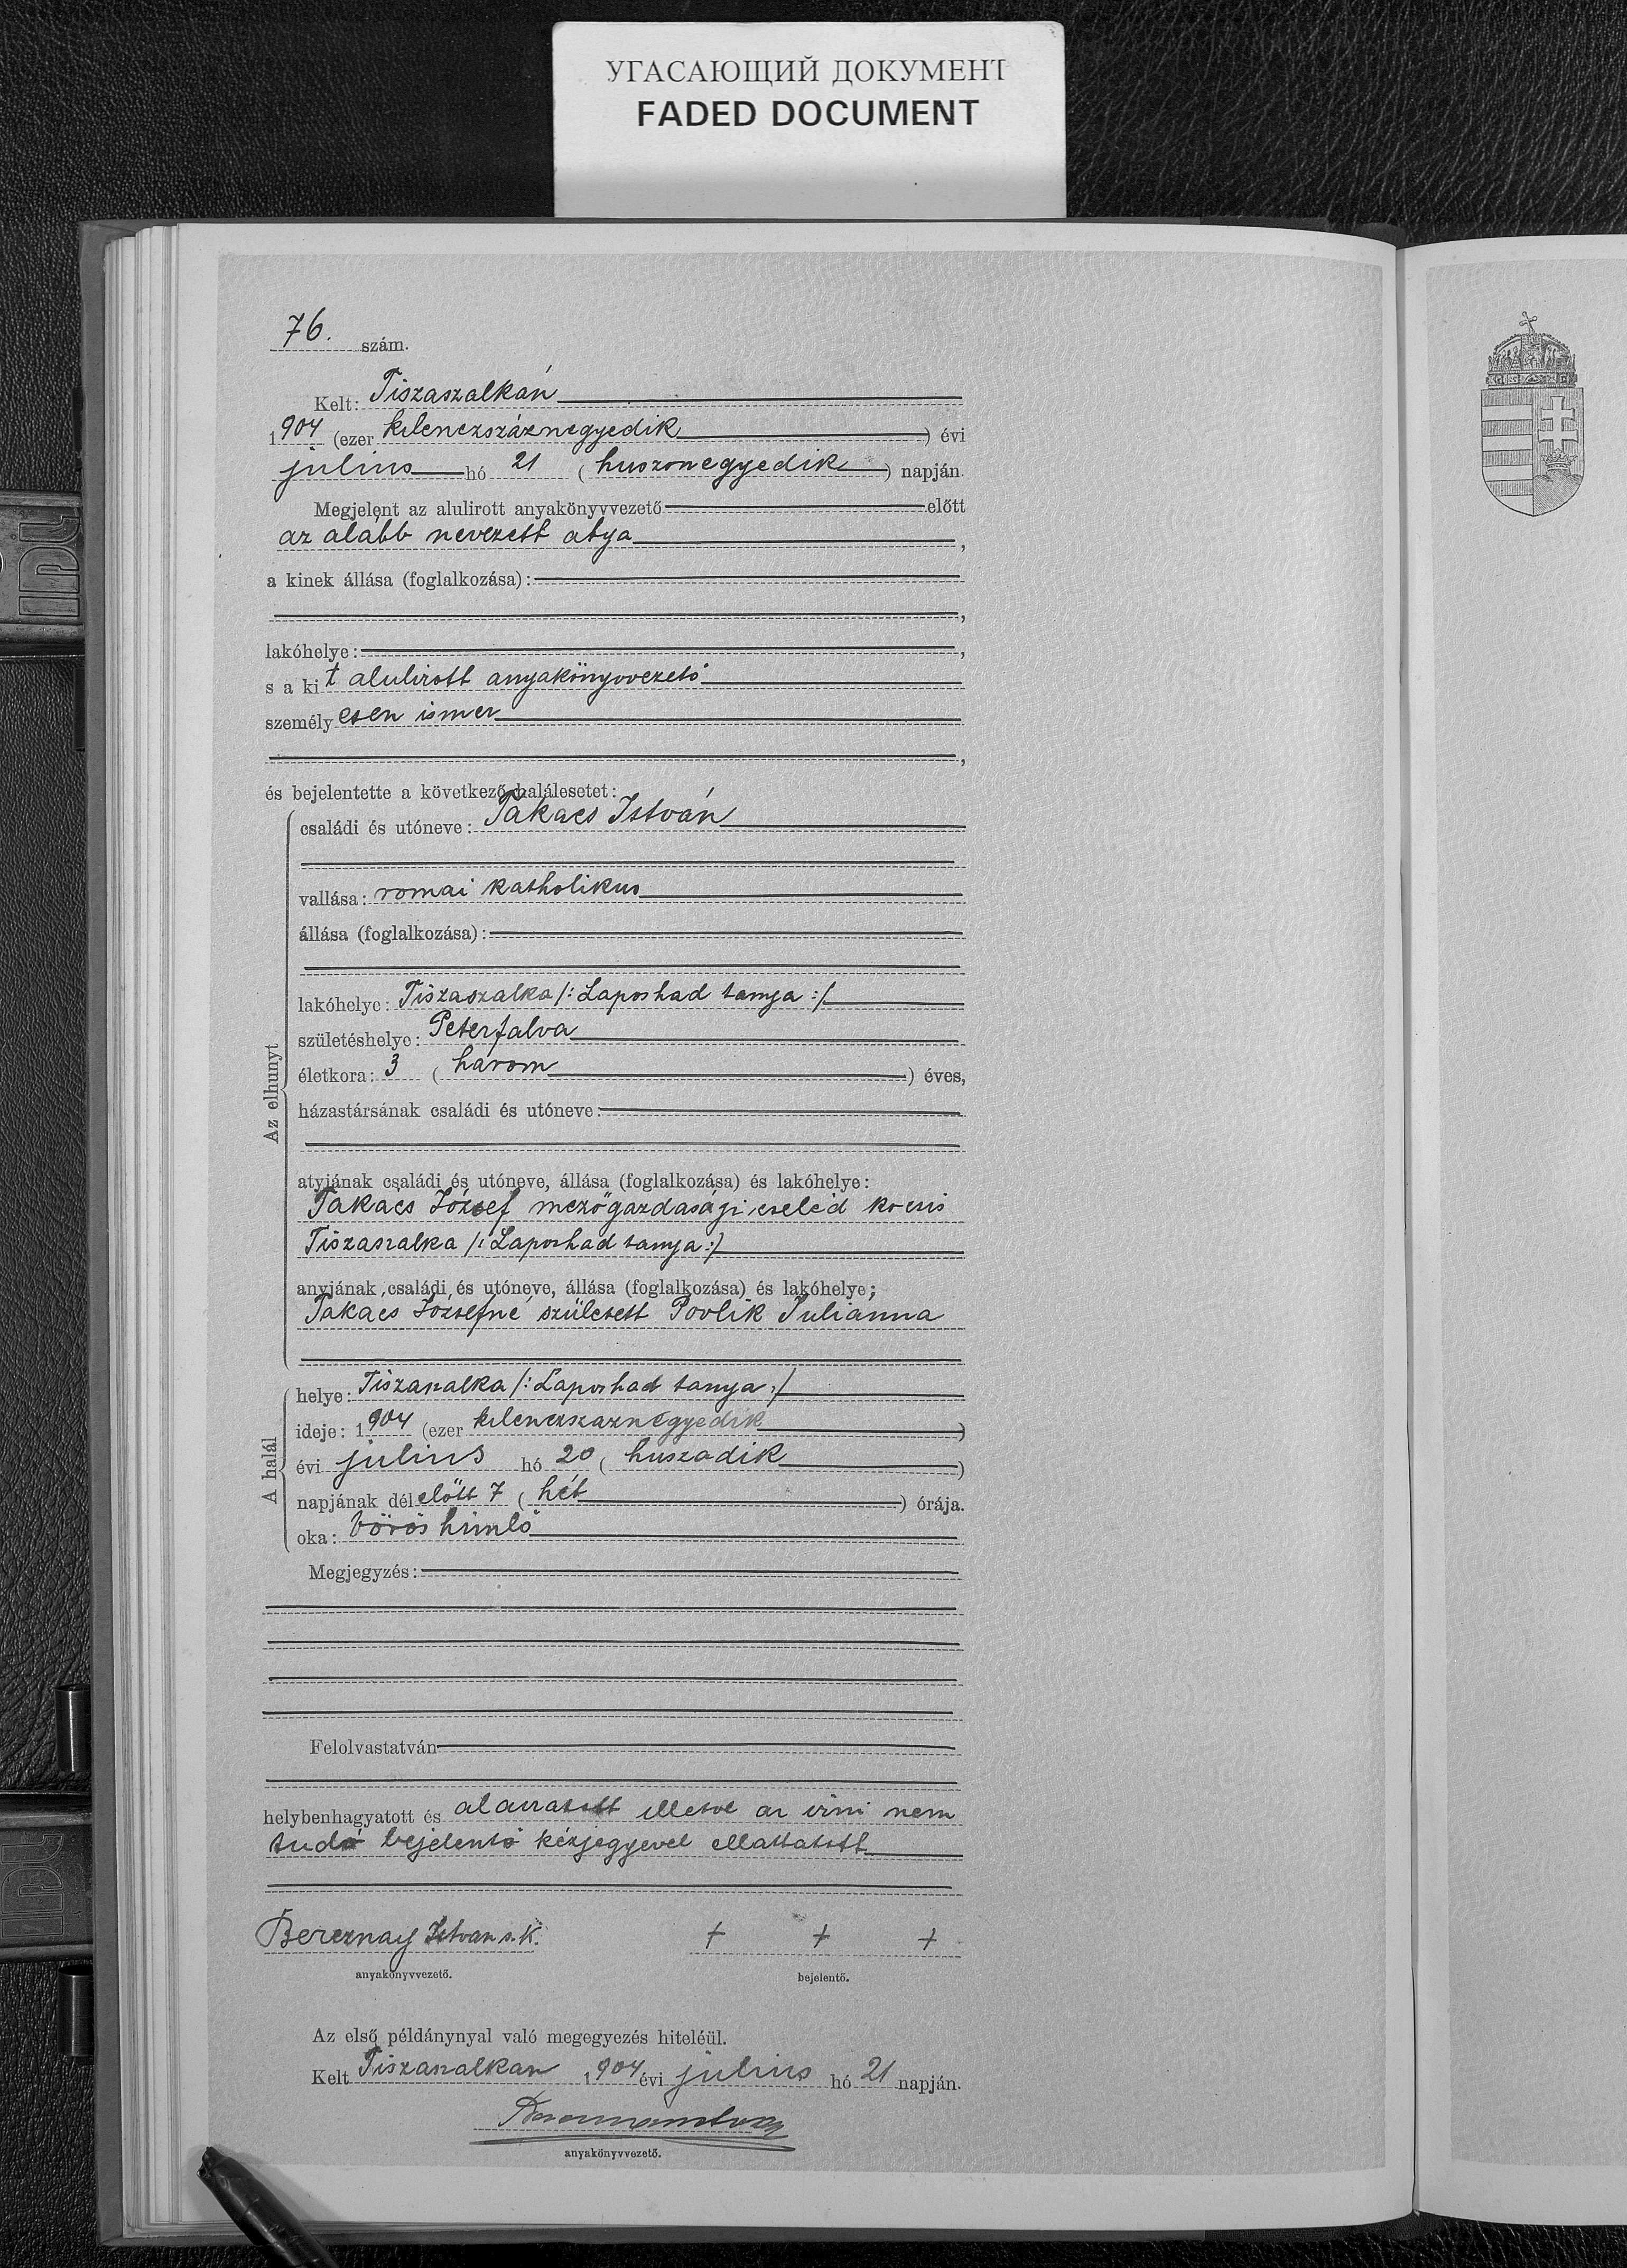 УГАСАЮЩИЙ ДОКУМЕНТ
FADED DOCUMENT
76. szám.
Kelt: Tiszaszalkán
1904 (ezer kilenczszáznegyedik) évi
julius hó 21 (huszonegyedik) napján.
Megjelent az alulirott anyakönyvvezető előtt
az alább nevezett atya,
a kinek állása (foglalkozása):
,
lakóhelye: ,
s a kit alulirott anyakönyvvezető
személyesen ismer
,
és bejelentette a következő halálesetet:
Az elhunyt
családi és utóneve: Takacs István
vallása: romai katholikus
állása (foglalkozása):
lakóhelye: Tiszaszalka /: Laposhad tanya :/
születéshelye: Peterfalva
életkora: 3 (három) éves,
házastársának családi és utóneve:
atyjának családi és utóneve, állása (foglalkozása) és lakóhelye:
Takács József mezőgazdasági cseléd kocsis
Tiszaszalka /: Laposhad tanya :/
anyjának családi és utóneve, állása (foglalkozása) és lakóhelye;
Takács Józsefné született Povlik Julianna
A halál
helye: Tiszaszalka /: Laposhad tanya :/
ideje: 1904 (ezer kilenczszáznegyedik)
évi julius hó 20 (huszadik)
napjának délelőtt 7 (hét) órája.
oka: Vörös himlő
Megjegyzés:
Felolvastatván
helybenhagyatott és aláiratott illetve az irni nem
tudó bejelentő kézjegyével elláttatott
Bereznay István s. k. + + +
anyakönyvvezető. bejelentő.
Az első példánynyal való megegyezés hiteléül.
Kelt Tiszaszalkán 1904 évi julius hó 21 napján.
anyakönyvvezető.